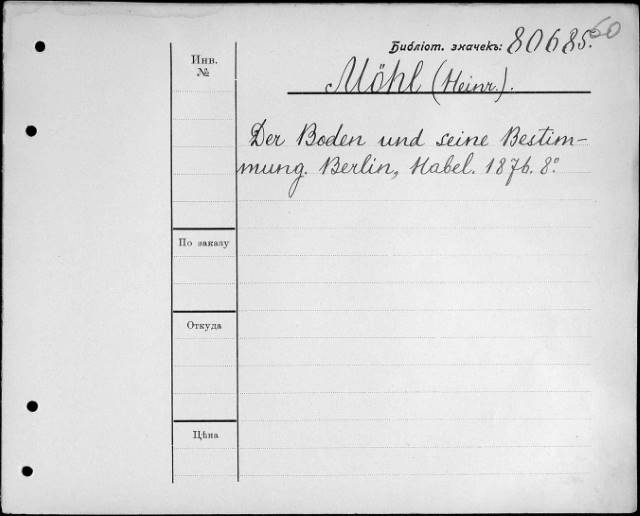 Библіот. значекъ: 80685. 60
Инв.
№
Möhl (Heinr.).
Der Boden und seine Bestim-
mung. Berlin, Habel. 1876. 8.°
По заказу
Откуда
Цѣна